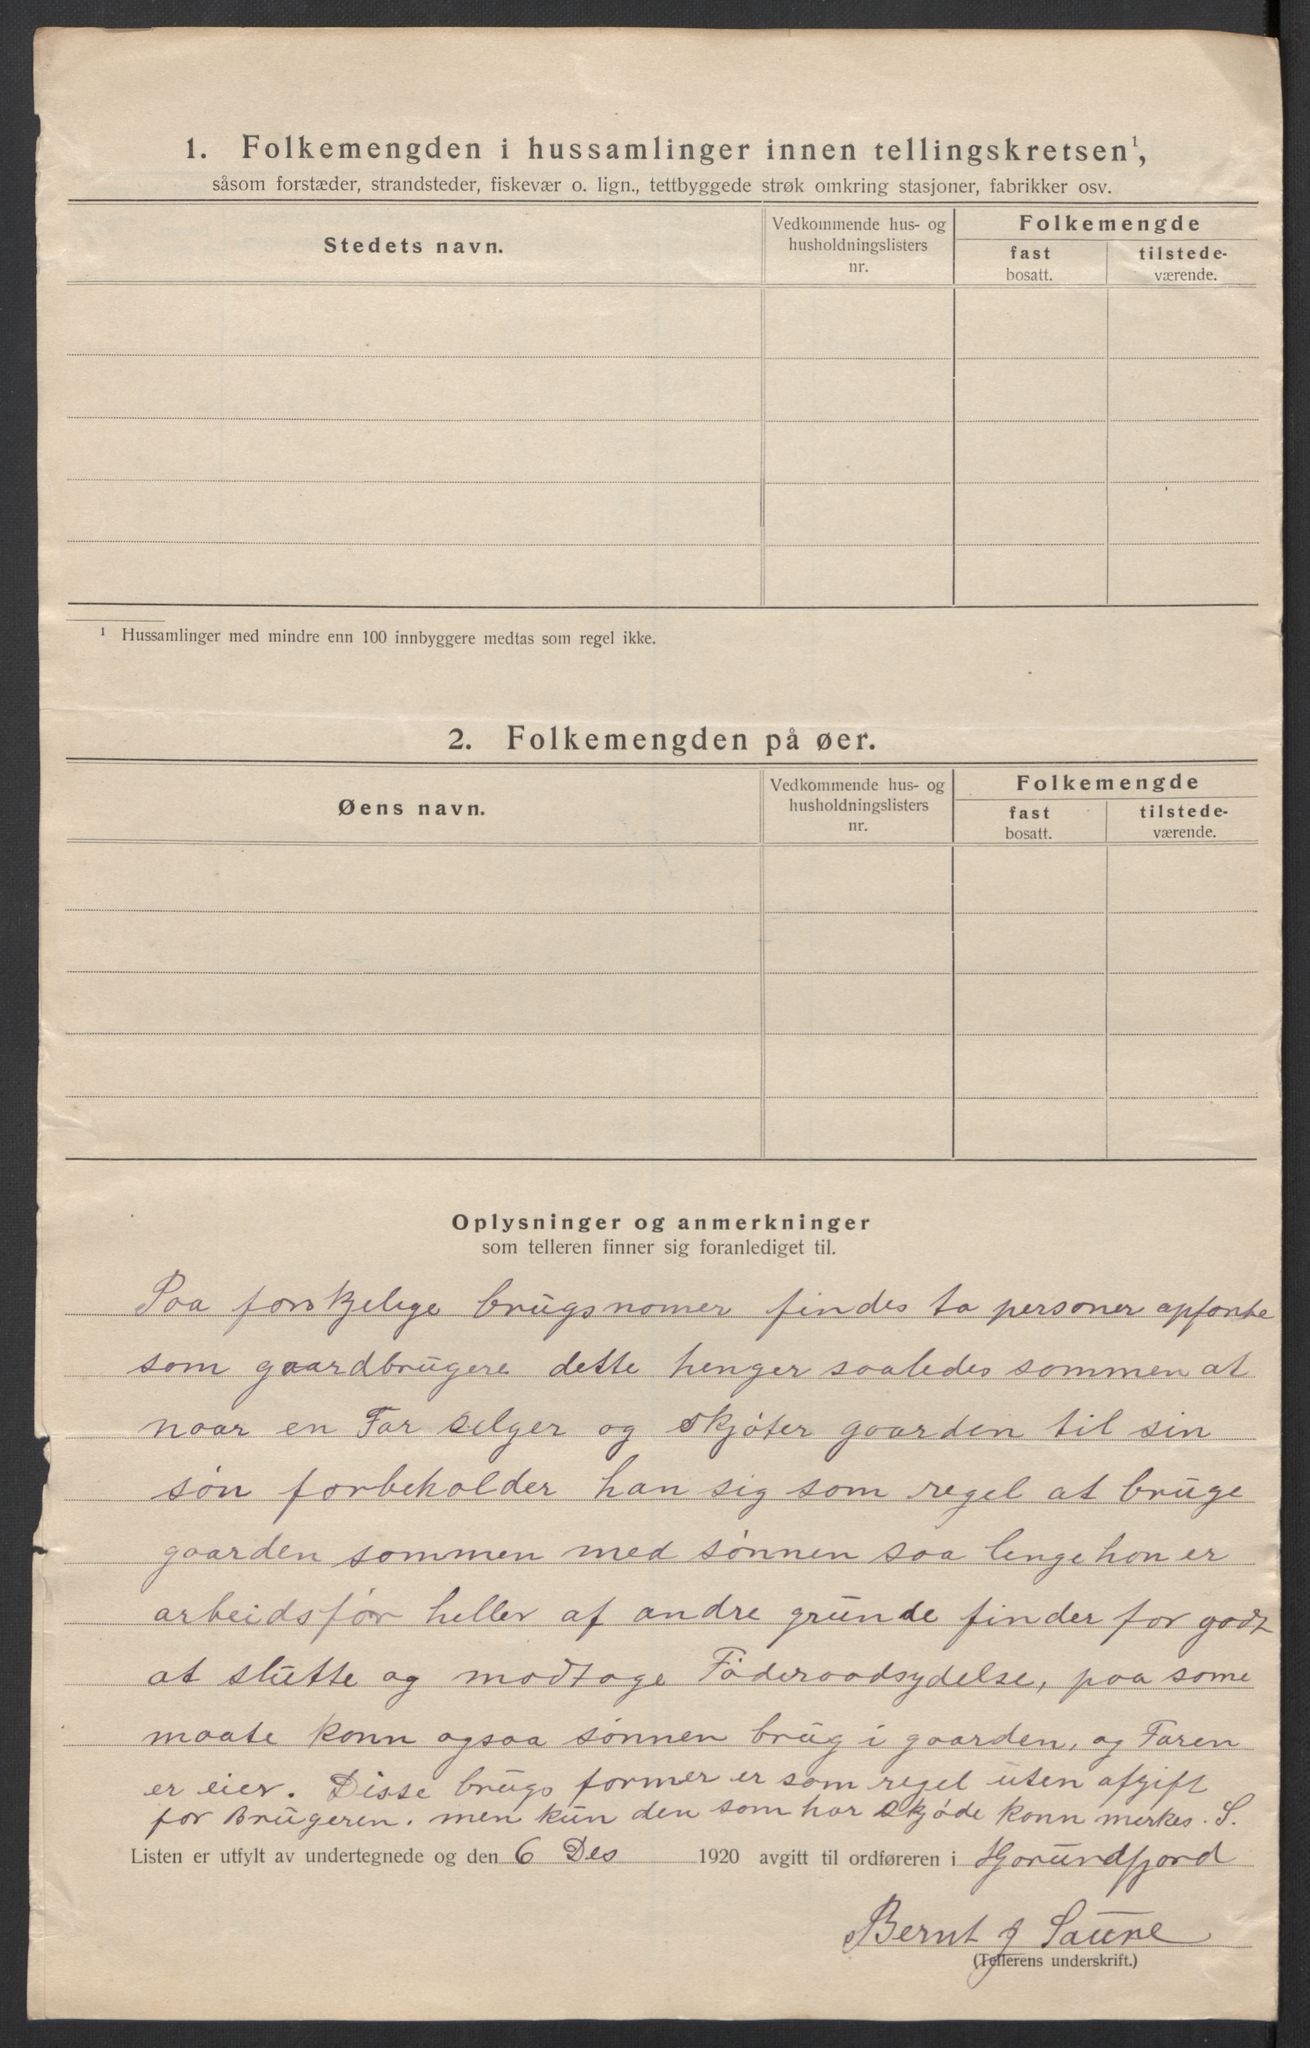 1. Folkemengden i hussamlinger innen tellingskretsen¹,
såsom forstæder, strandsteder, fiskevær o. lign., tettbyggede strøk omkring stasjoner, fabrikker osv.
Stedets navn.
Vedkommende hus- og
husholdningslisters
nr.
Folkemengde
fast
bosatt.
tilstede-
værende.
¹ Hussamlinger med mindre enn 100 innbyggere medtas som regel ikke.
2. Folkemengden på øer.
Øens navn.
Vedkommende hus- og
husholdningslisters
nr.
Folkemengde
fast
bosatt.
tilstede-
værende.
Oplysninger og anmerkninger
som telleren finner sig foranlediget til.
Paa forskjelige brugsnomer findes to personer opførte
som gaardbrugere dette henger saaledes sammen at
naar en Far selger og skjøter gaarden til sin
søn forbeholder han sig som regel at bruge
gaarden sammen med sønnen saa lenge han er
arbeidsfør heller af andre grunde finder for godt
at slutte og modtage Føderaadsydelse, paa same
maate kann ogsaa sønnen brug i gaarden, og Faren
er eier. Disse brugs former er som regel uten afgift
for Brugeren. men kun den som har skjøde kann merkes. S.
Listen er utfylt av undertegnede og den 6 Des 1920 avgitt til ordføreren i Hjorundfjord
Bernt J Saure
(Tellerens underskrift.)